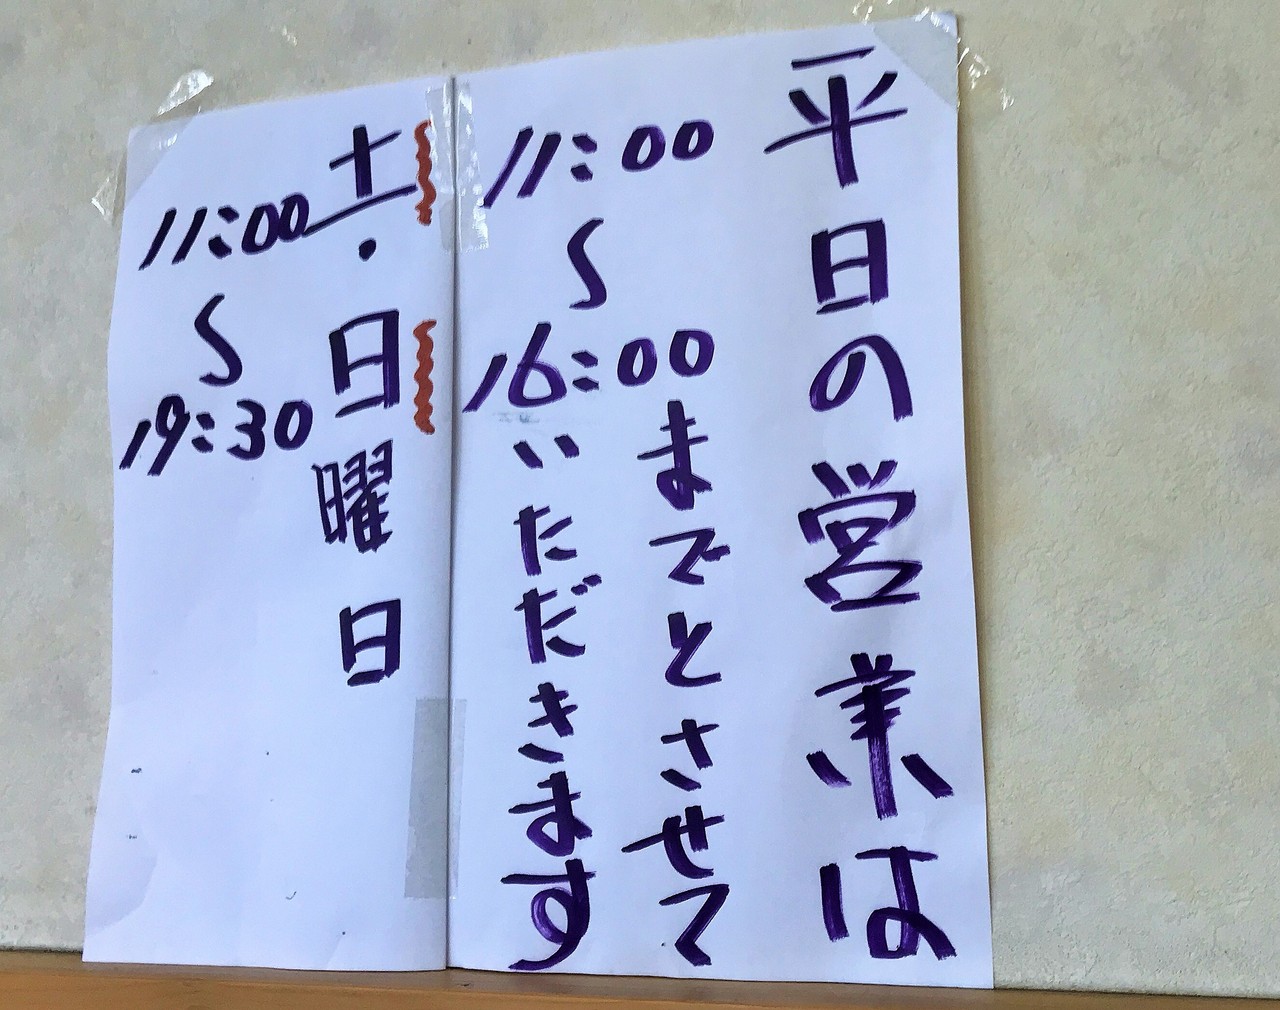 平日の営業は
11:00
〜
16:00
までとさせて
いただきます
土・日曜日
11:00
〜
19:30